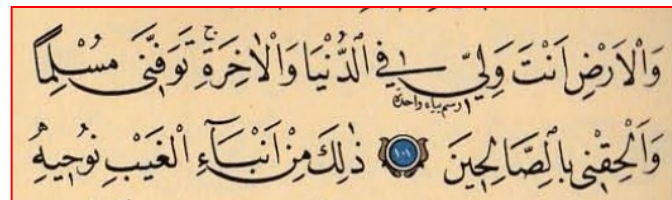 وَالْاَرْضِ اَنْتَ وَلِيّ۪ فِي الدُّنْيَا وَالْاٰخِرَةِۚ تَوَفَّن۪ي مُسْلِمًا
رسم بياء واحدة
وَاَلْحِقْن۪ي بِالصَّالِح۪ينَ ﴿١٠١﴾ ذٰلِكَ مِنْ اَنْبَٓاءِ الْغَيْبِ نُوح۪يهِ